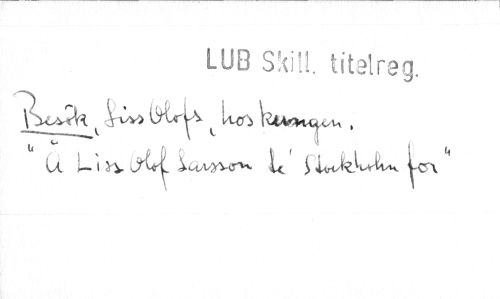 LUB Skill. titelreg.
Besök, Liss Olofs, hos kungen.
"Ä Liss Olof Larsson te' Stockholm for"